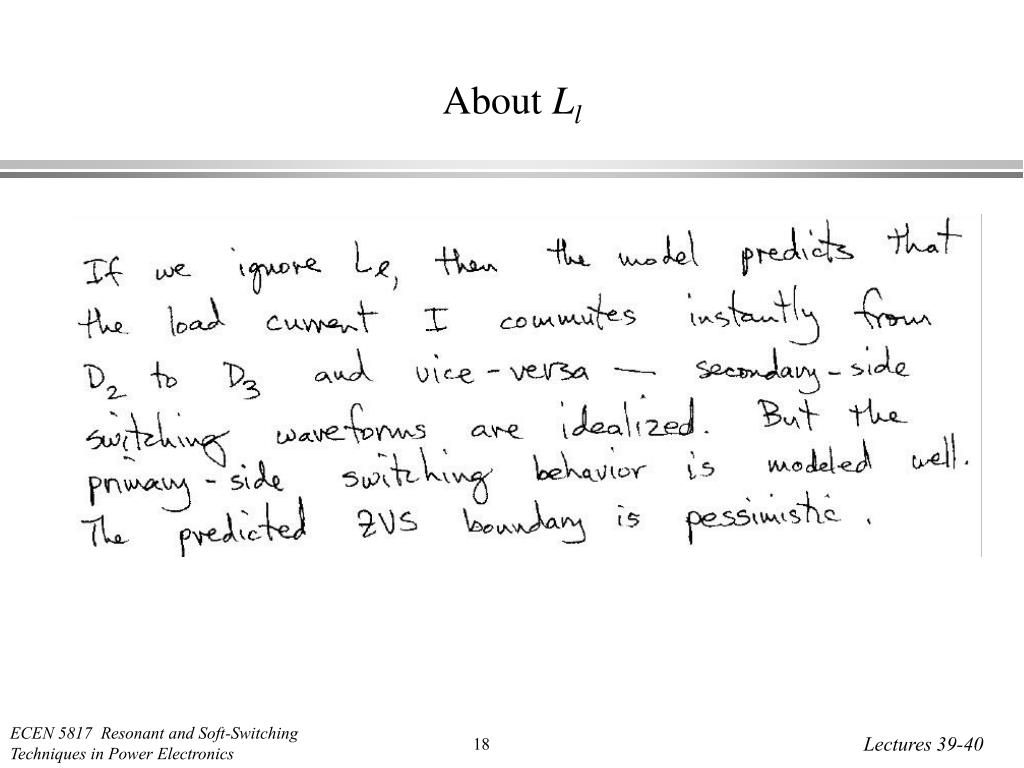 About Ll
If we ignore Lℓ, then the model predicts that
the load current I commutes instantly from
D2 to D3 and vice-versa — secondary-side
switching waveforms are idealized. But the
primary-side switching behavior is modeled well.
The predicted ZVS boundary is pessimistic.
ECEN 5817 Resonant and Soft-Switching
Techniques in Power Electronics
18
Lectures 39-40